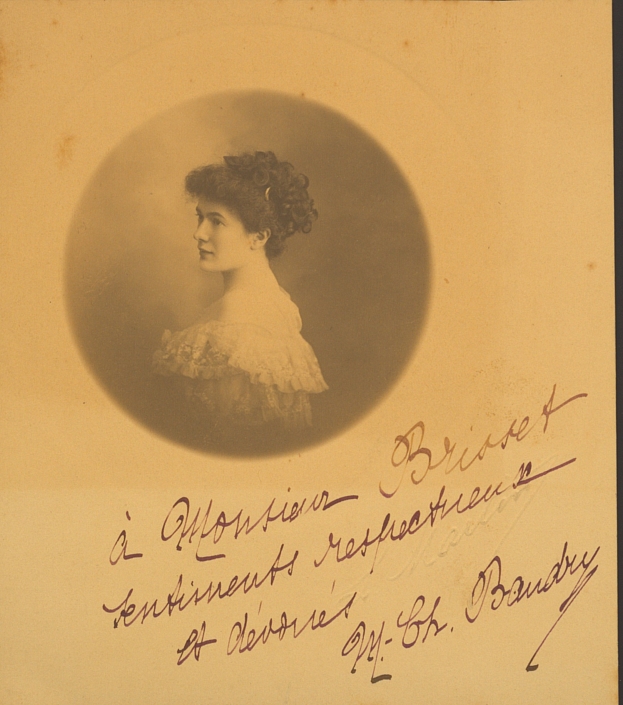 à Monsieur Brisset
sentiments respectueux
et dévoués
M-Ch. Baudry